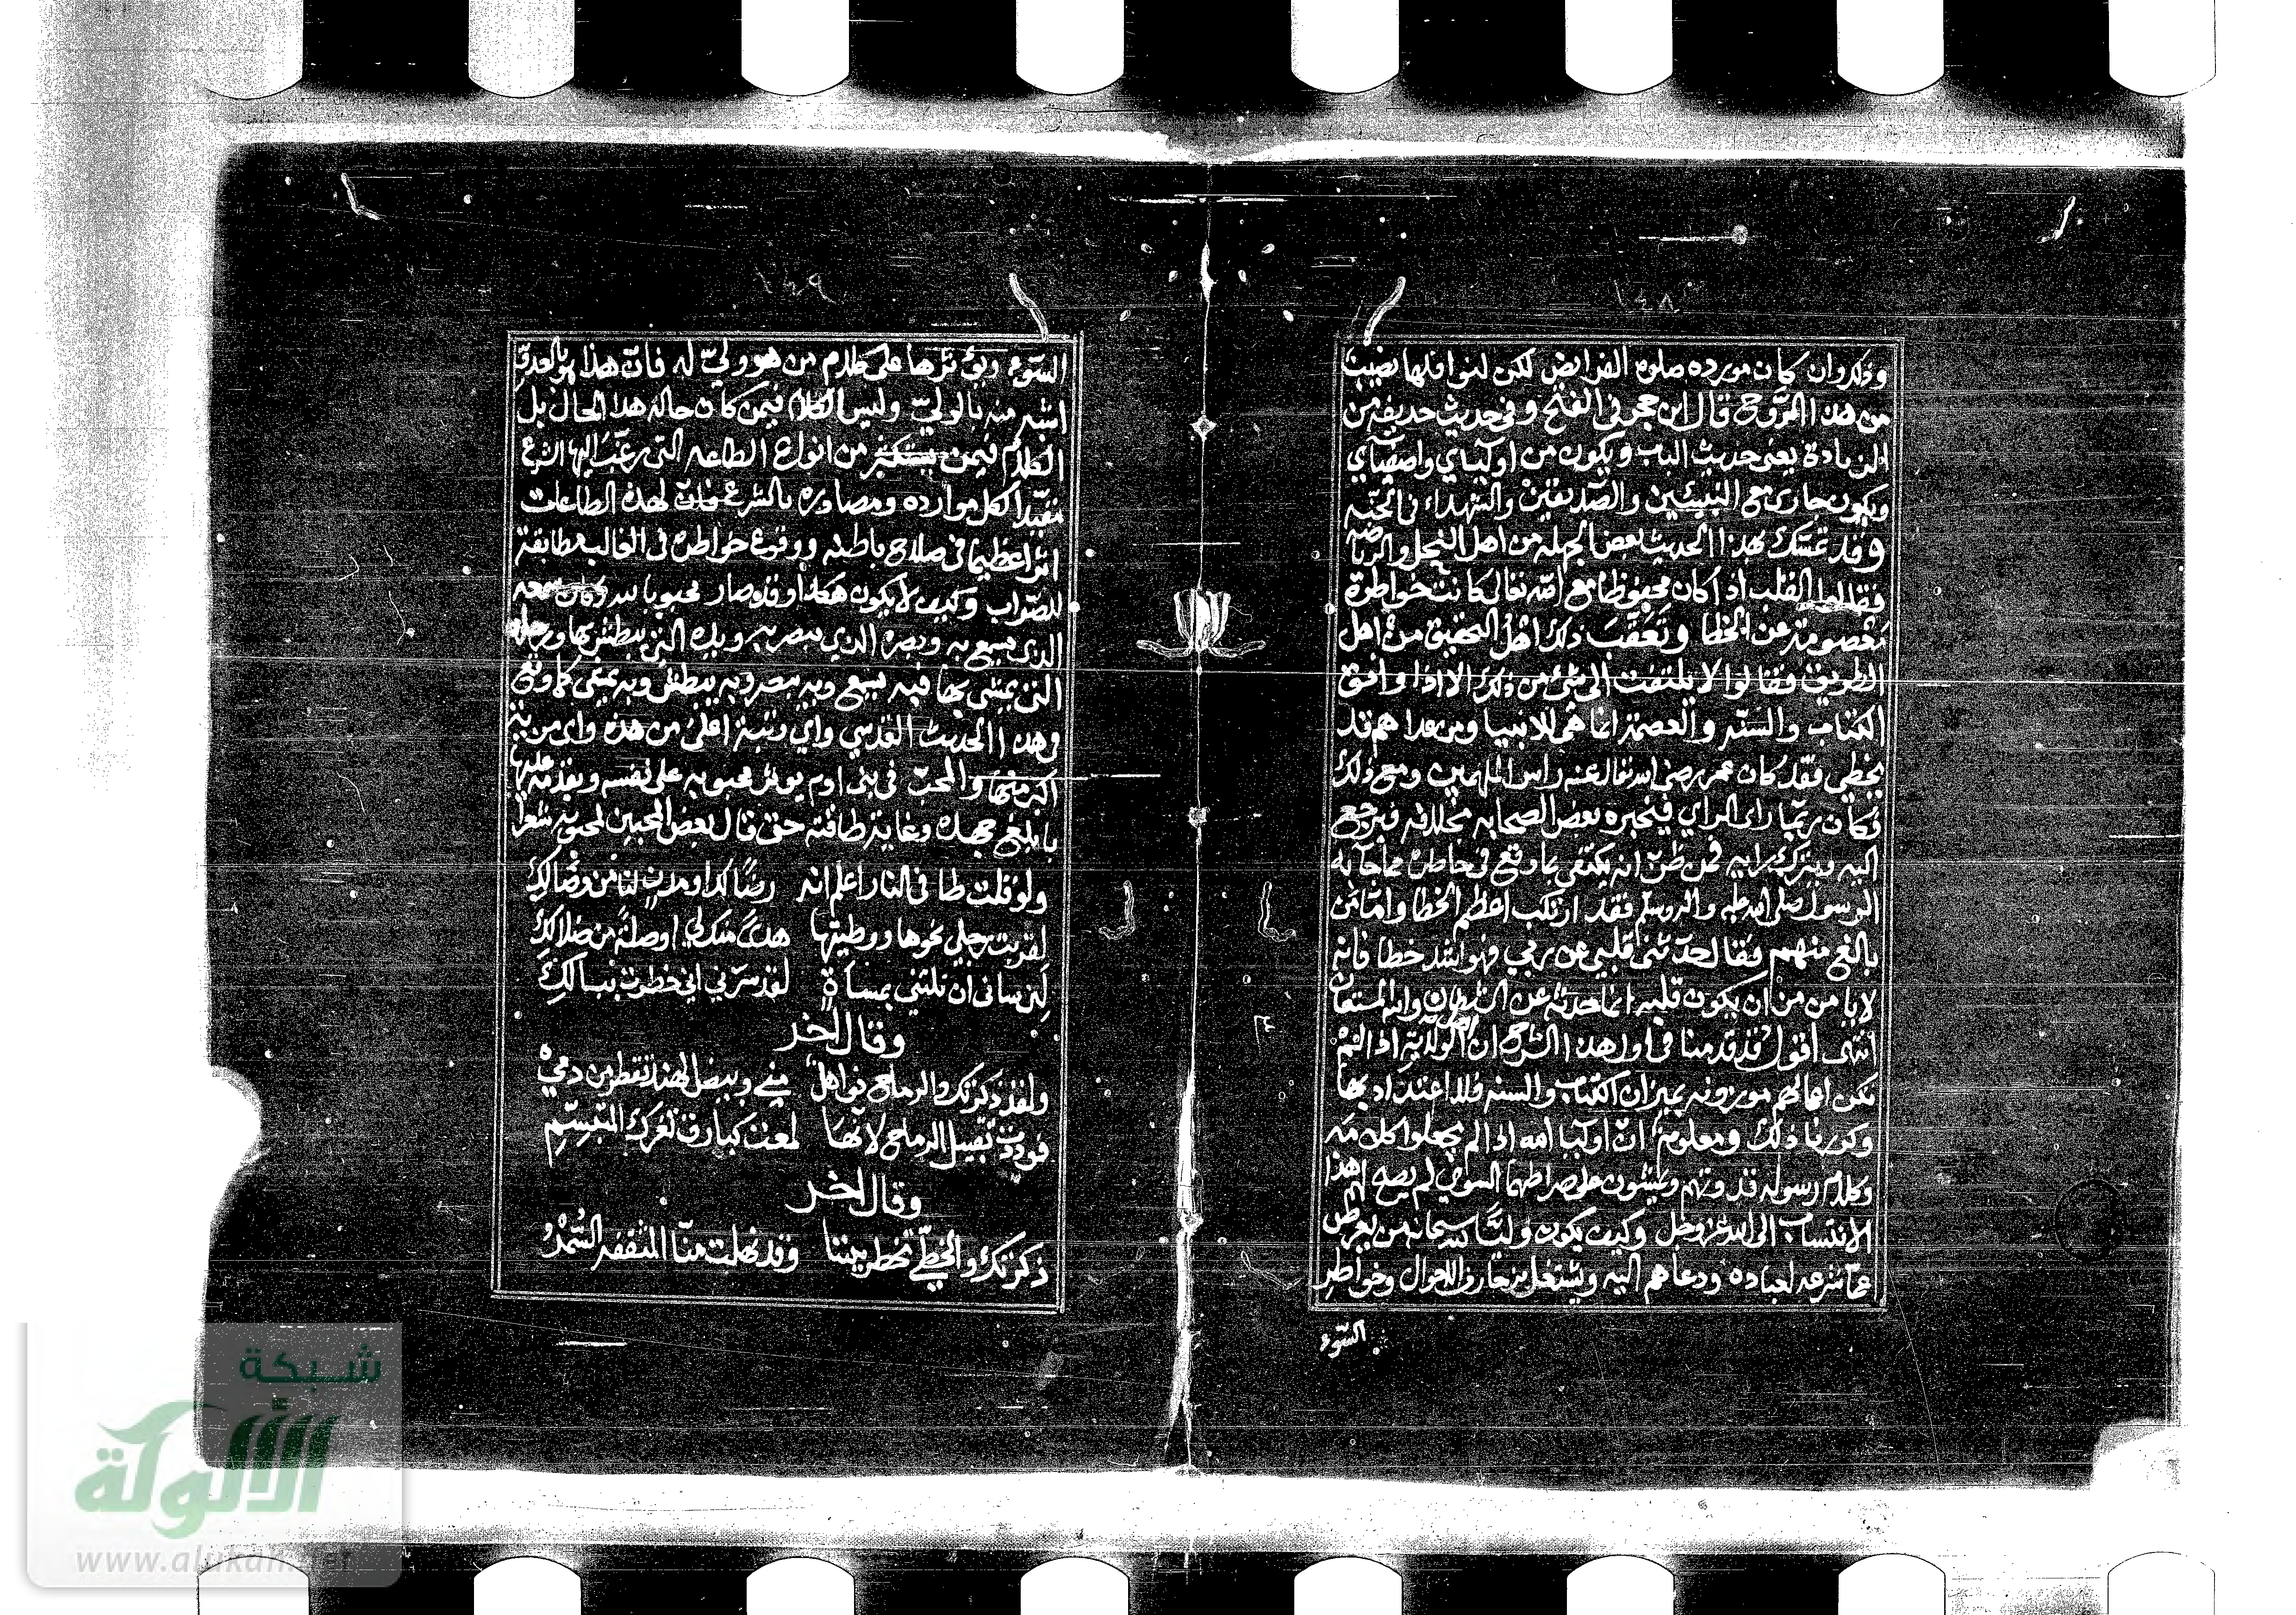 ١٤٨
وذلك وان كان مورده صلوة الفرايض لكن لنوافلها نصيب
من هذا الروح قال ابن حجر في الفتح وفي حديث حذيفة من
الزيادة يعنى حديث الباب ويكون من اوليائي واصفيائي
ويكون جارى مع النبيئين والصديقين والشهداء في الجنة
وقد تمسك بهذا الحديث بعض الجهلة من اهل التجلى والرياضه
فقالوا القلب اذا كان محفوظا مع الله تعالى كانت خواطره
معصومة عن الخطا وتعقب ذلك اهل التحقيق من اهل
الطريق فقالوا لا يلتفت الى شئ من ذلك الا اذا وافق
الكتاب والسنة والعصمة انما هي للانبيا ومن عداهم قد
يخطى فقد كان عمر رضي الله تعالى عنه راس الملهمين ومع ذلك
فكان ربما راى الراي فيخبره بعض الصحابه بخلافه فيرجع
اليه ويترك رايه فمن ظن انه يكتفى بما وقع في خاطره عما جآ به
الرسول صلى الله عليه واله وسلم فقد ارتكب اعظم الخطا واما من
بالغ منهم فقال حدثنى قلبي عن ربي فهو اشد خطا فانه
لا يامن من ان يكون قلبه انما حدثه عن الشيطان والله المستعان
انتهى اقول قد قدمنا في اول هذا الشرح ان اهل الولاية اذا لم
تكن اعمالهم موزونه بميزان الكتاب والسنه فلا اعتداد بها
وكررنا ذلك ومعلوم ان اوليا الله اذا لم يجعلوا كلامه
وكلام رسوله قدوتهم ويمشون على صراطهما السوي لم يصح لهم هذا
الانتساب الى الله عز وجل وكيف يكون وليا لله سبحانه من يعرض
عما شرعه لعباده ودعاهم اليه ويشتغل بزخارف الاحوال وخواطر
السوء
١٤٩
السوء ويؤثرها على كلام من هو ولي له فان هذا هو بالعدو
اشبه منه بالولي وليس الكلام فيمن كان حاله هذا الحال بل
الكلام فيمن يستكثر من انواع الطاعه التي رغب اليها الشرع
مقيدا لكل موارده ومصادره بالشرع فان لهذه الطاعات
اثرا عظيما في صلاح باطنه ووقوع خواطره في الغالب مطابقة
للصواب وكيف لا يكون هكذا وقد صار محبوبا لله وكان سمعه
الذى يسمع به وبصره الذي يبصر به ويده التى يبطش بها ورجله
التى يمشى بها فبه يسمع وبه يبصر وبه يبطش وبه يمشي كما وقع
في هذا الحديث القدسي واي رتبة اعلى من هذه واى مزية
اكبر منها والمحب في بنى ادم يوثر محبوبه على نفسه ويقدمه عليها
بابلغ جهده وغاية طاقته حتى قال بعض المحبين لمحبوبه شعرا
ولو قلت طا في النار اعلم انه رضًا لك او مدن لنا من وصالك
لقربت رجلي نحوها ووطيتها هدىً منك لي او ضلةً من ضلالك
لئن ساني ان نلتني بمساة لقد سرني اني خطرت ببالك
وقال اخر
ولقد ذكرتك والرماح نواهل مني وبيض الهند تقطر من دمي
فوددت تقبيل الرماح لانها لمعت كبارق ثغرك المتبسم
وقال اخر
ذكرتك والخطيّ يخطر بيننا وقد نهلت منا المثقفه السمر
شبكة
الألوكة
www.alukah.net